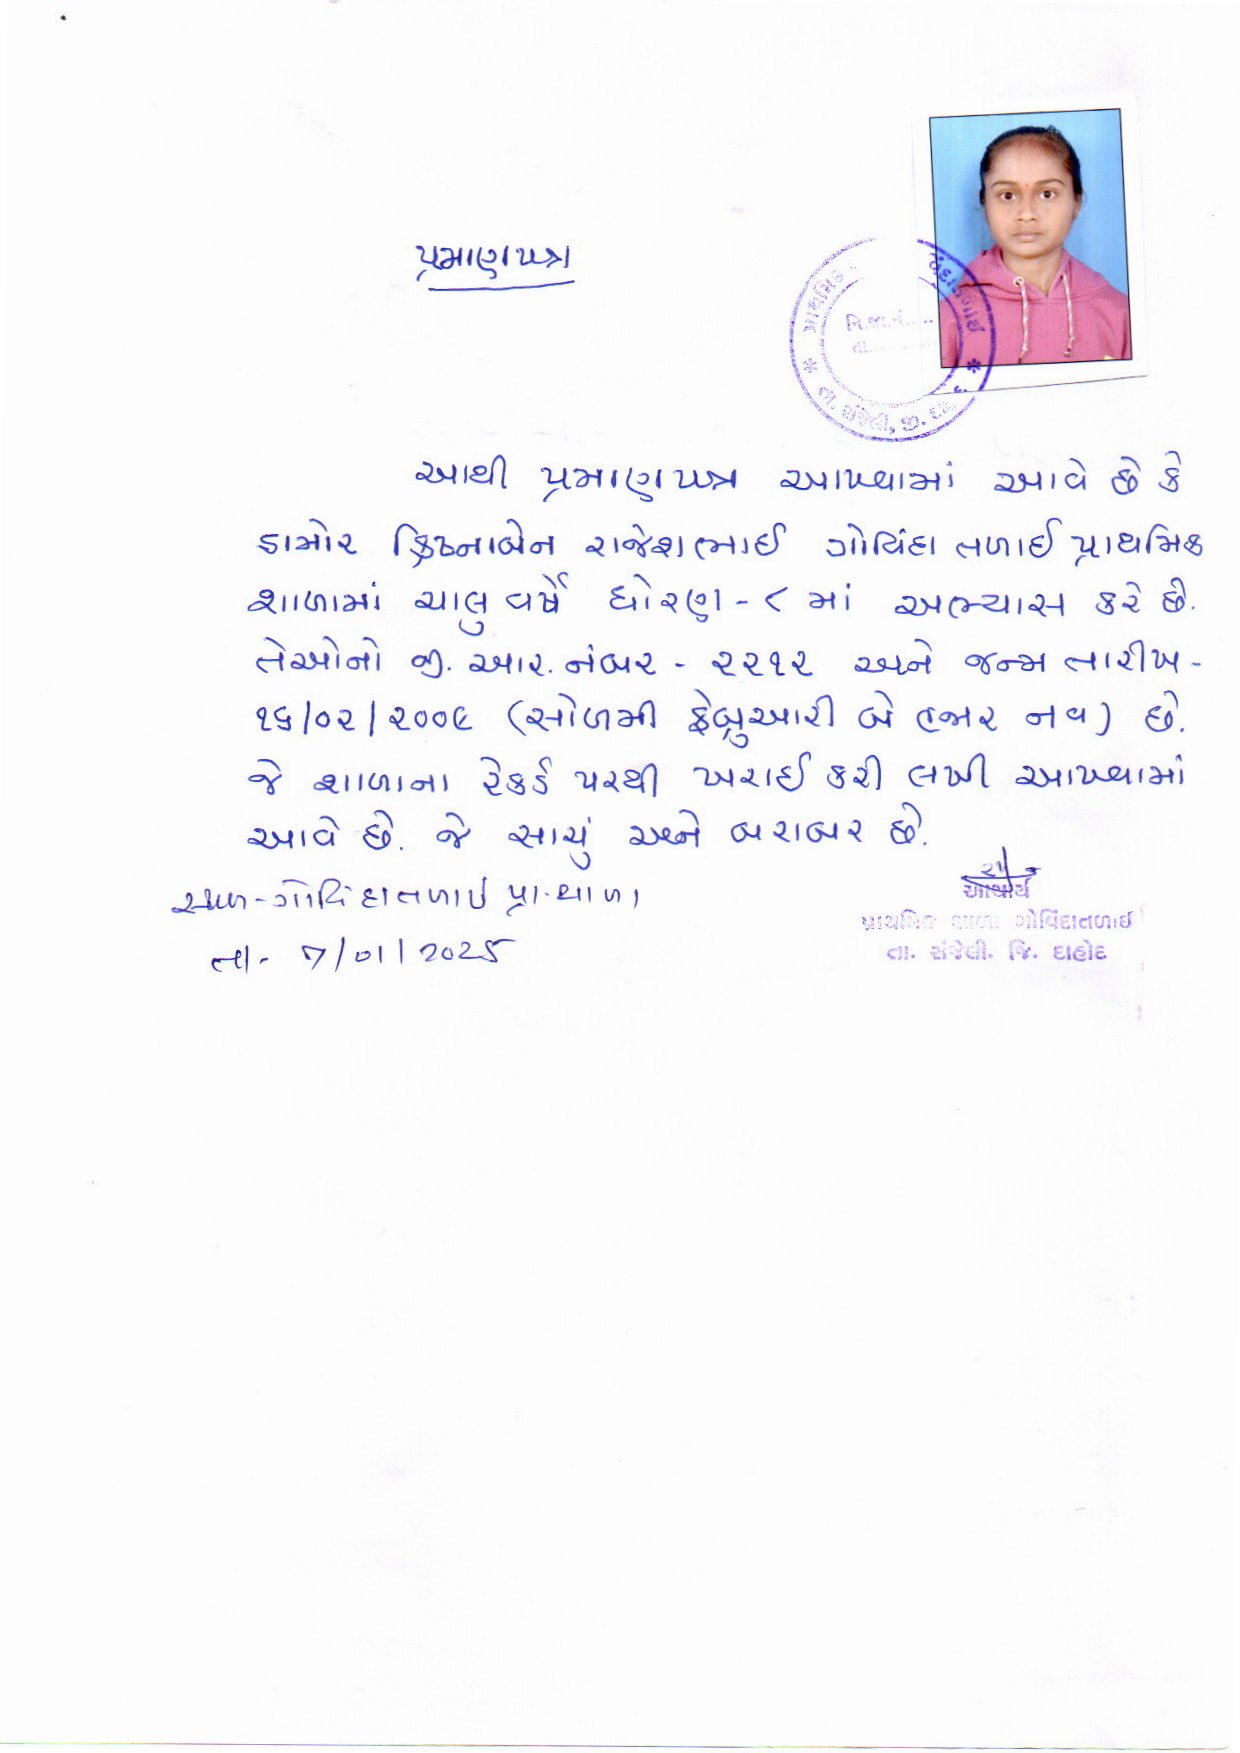 પ્રમાણપત્ર
પ્રાથમિક
ગોવિંદાતળાઈ
નિ.જા.નં.....
તા...........
તા. સંજેલી, જી. દા
આથી પ્રમાણપત્ર આપવામાં આવે છે કે
ડામોર ક્રિષ્નાબેન રાજેશભાઈ ગોવિંદા તળાઈ પ્રાથમિક
શાળામાં ચાલુ વર્ષે ધોરણ - ૮ માં અભ્યાસ કરે છે.
તેઓનો જી. આર. નંબર - ૨૨૧૨ અને જન્મ તારીખ -
૧૬/૦૨/૨૦૦૯ (સોળમી ફેબ્રુઆરી બે હજાર નવ) છે.
જે શાળાના રેકર્ડ પરથી ખરાઈ કરી લખી આપવામાં
આવે છે. જે સાચું અને બરાબર છે.
સ્થળ - ગોવિંદાતળાઈ પ્રા. શાળા
તા - 7/01/2025
આચાર્ય
પ્રાથમિક શાળા ગોવિંદાતળાઈ
તા. સંજેલી. જિ. દાહોદ